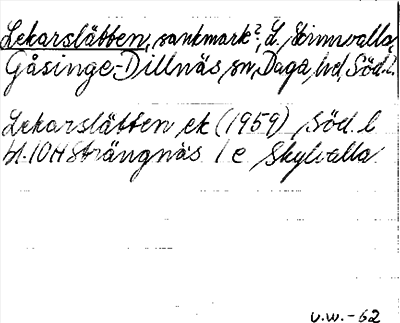 Lekarslätten, sankmark?, L. Sörmvalla,
Gåsinge-Dillnäs sn, Daga hd, Söd. l.
Lekarslätten ek (1959) Söd. l
bl. 10H Strängnäs 1 e Skylvalla
v.w.-62